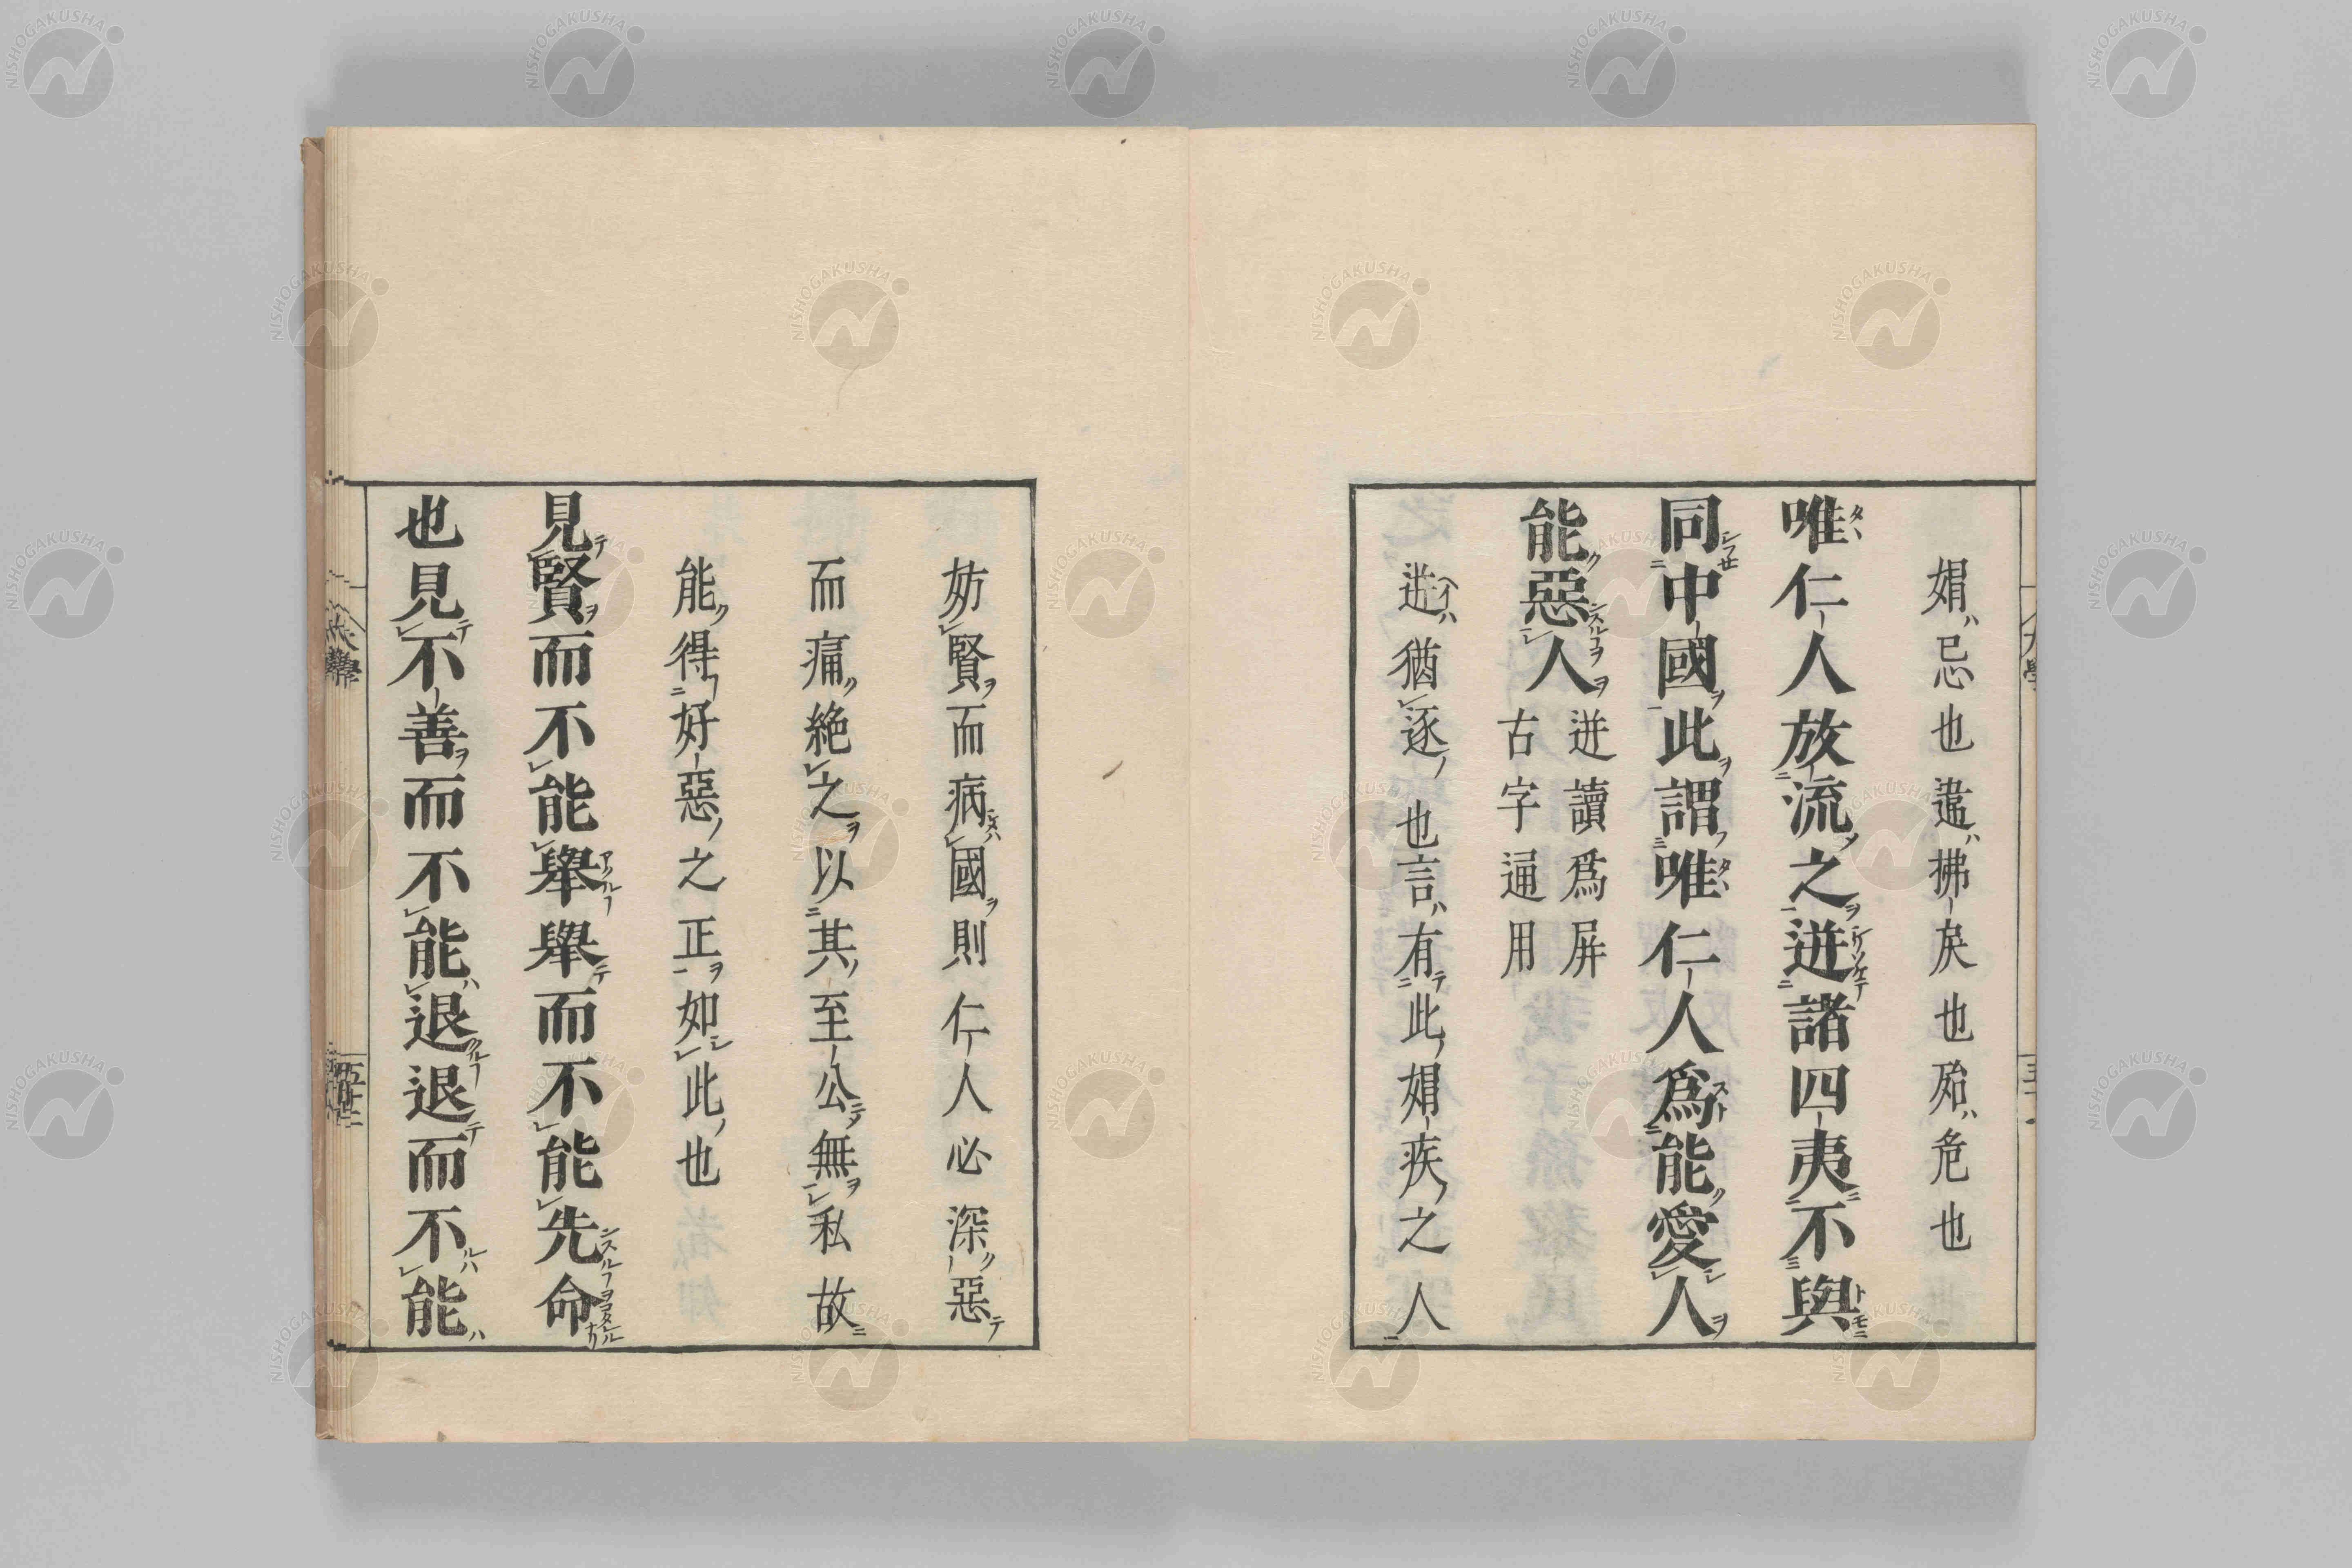 娼忌也違拂戾也殆危也
唯仁人放流之迸諸四夷不與
同中國此謂唯仁人爲能愛人
能惡人
迸讀爲屏
古字通用
迸猶逐也言有此媢疾之人
妨賢而病國則仁人必深惡
而痛絶之以其至公無私故
能得好惡之正如此也
見賢而不能舉舉而不能先命
也見不善而不能退退而不能
大學
NISHOGAKUSHA